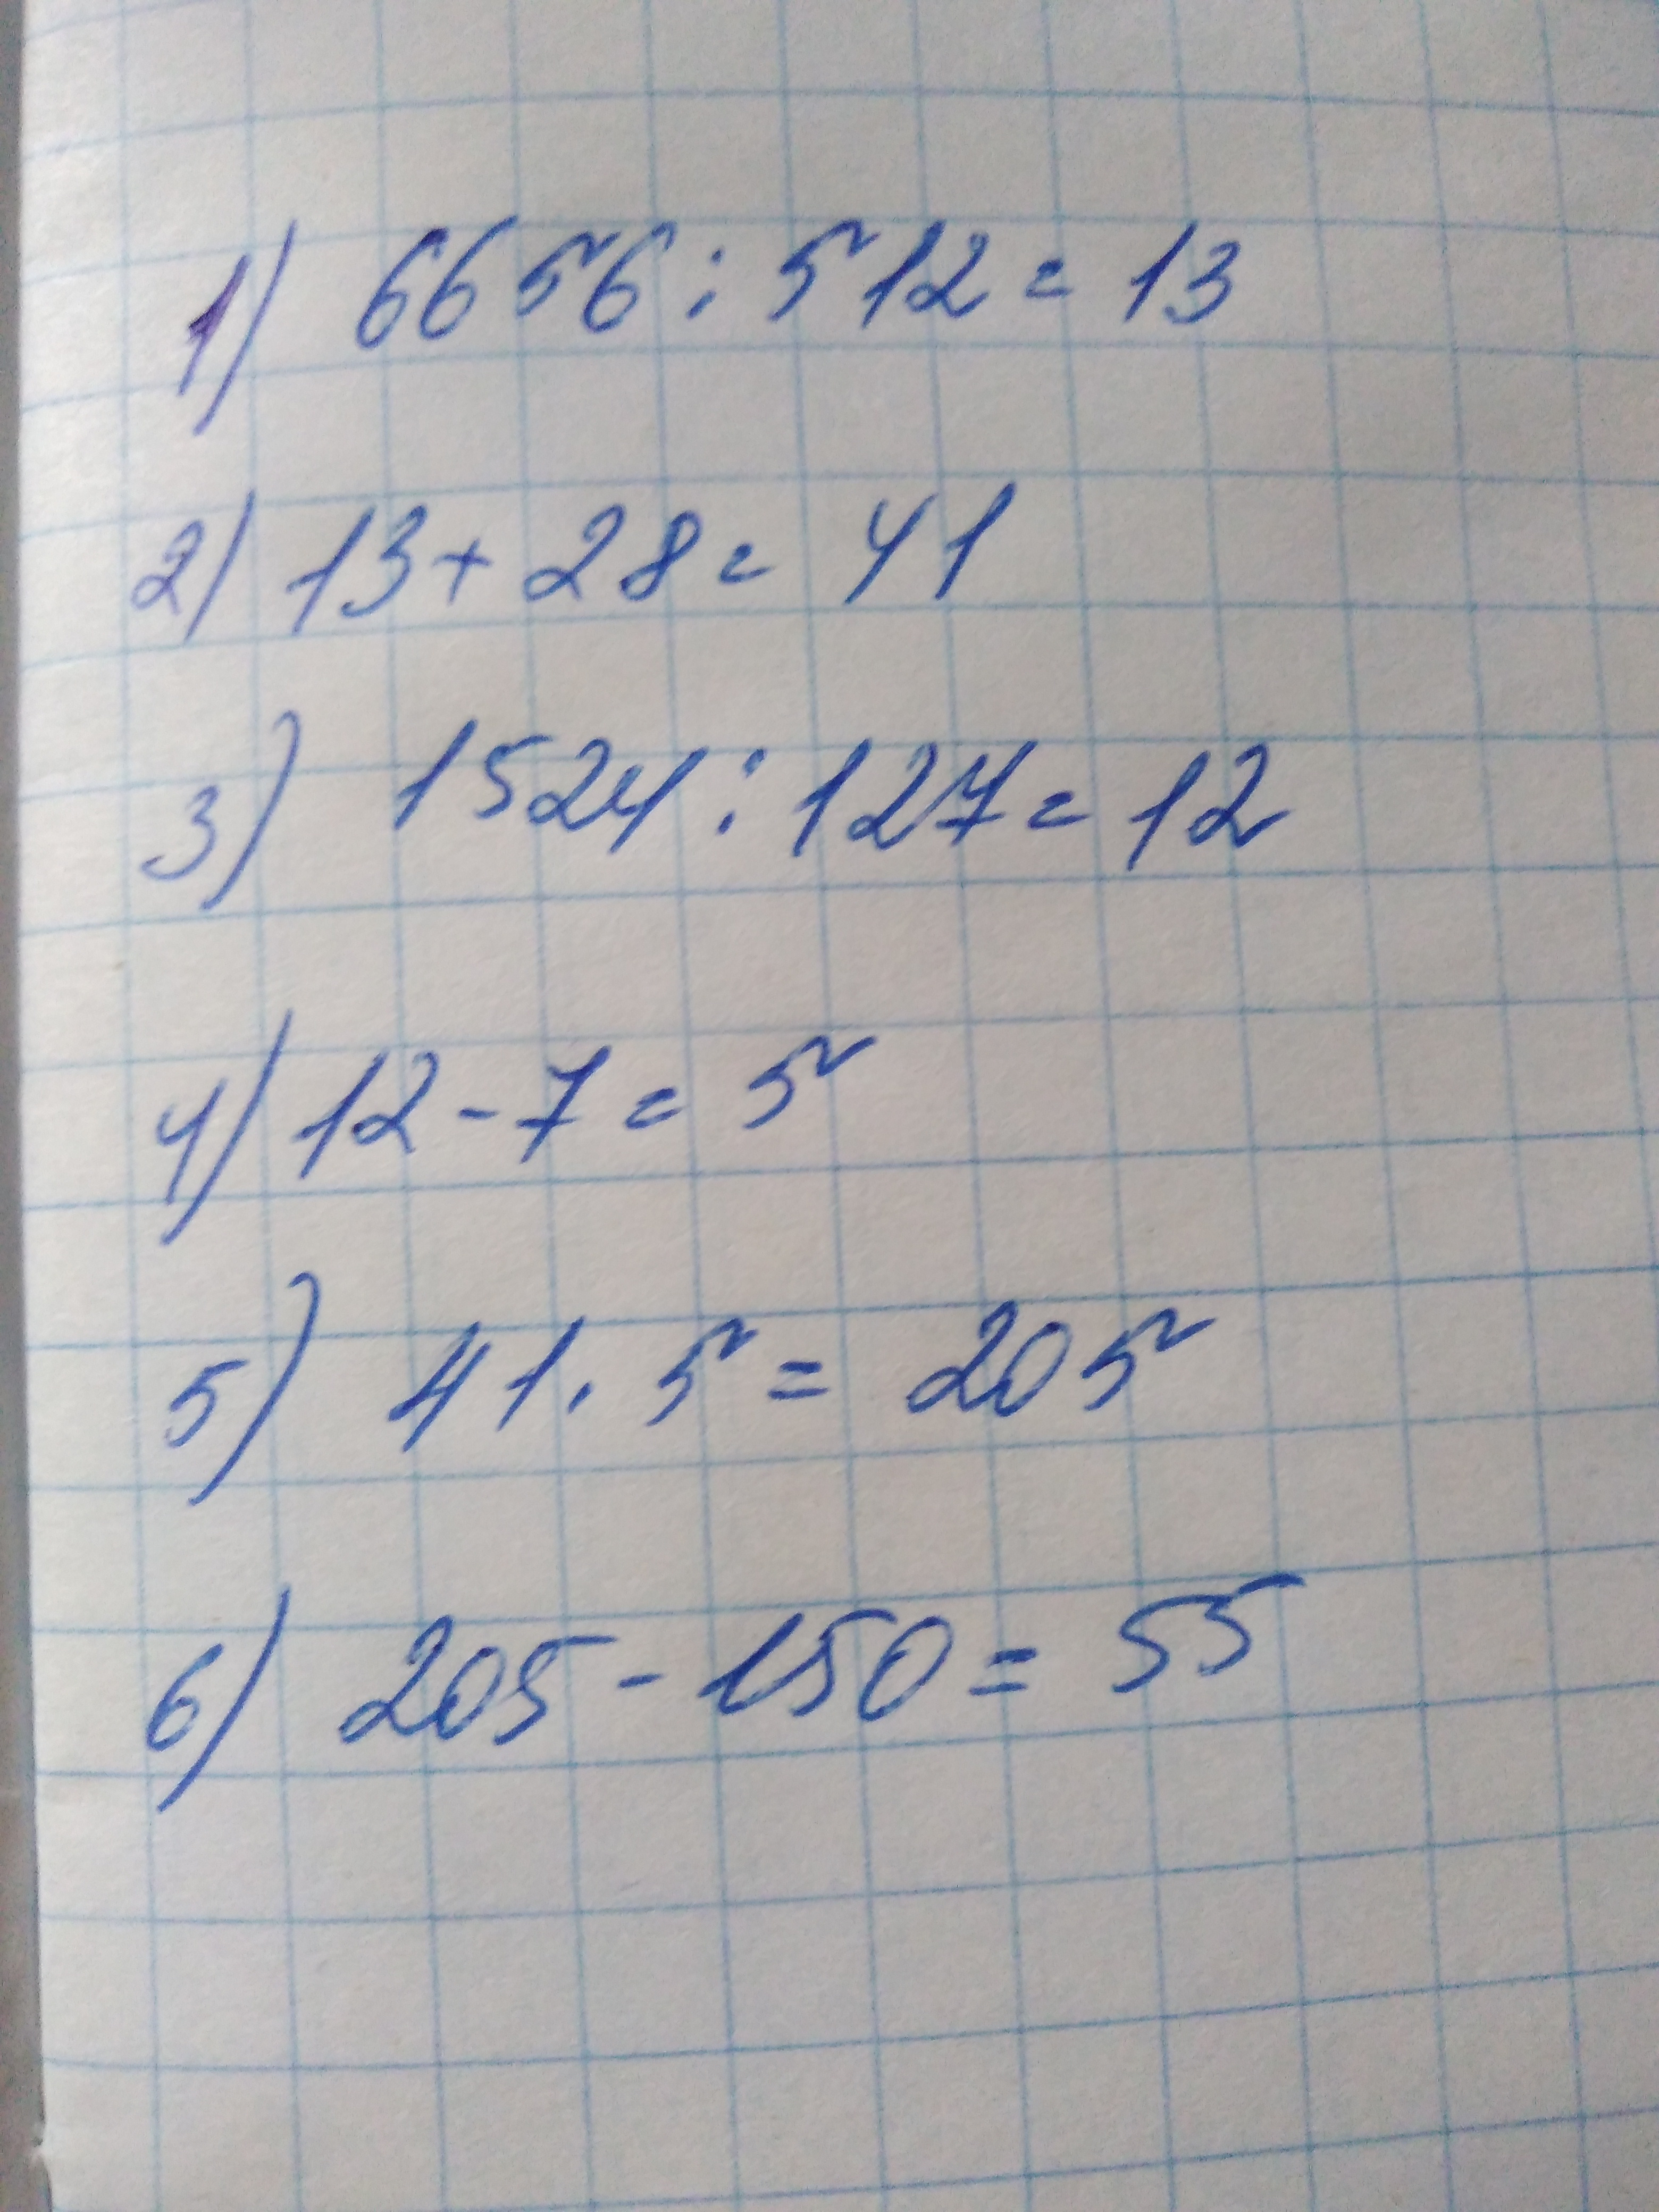 1) 6656 : 512 = 13
2) 13 + 28 = 41
3) 1524 : 127 = 12
4) 12 - 7 = 5
5) 41 . 5 = 205
6) 205 - 150 = 55